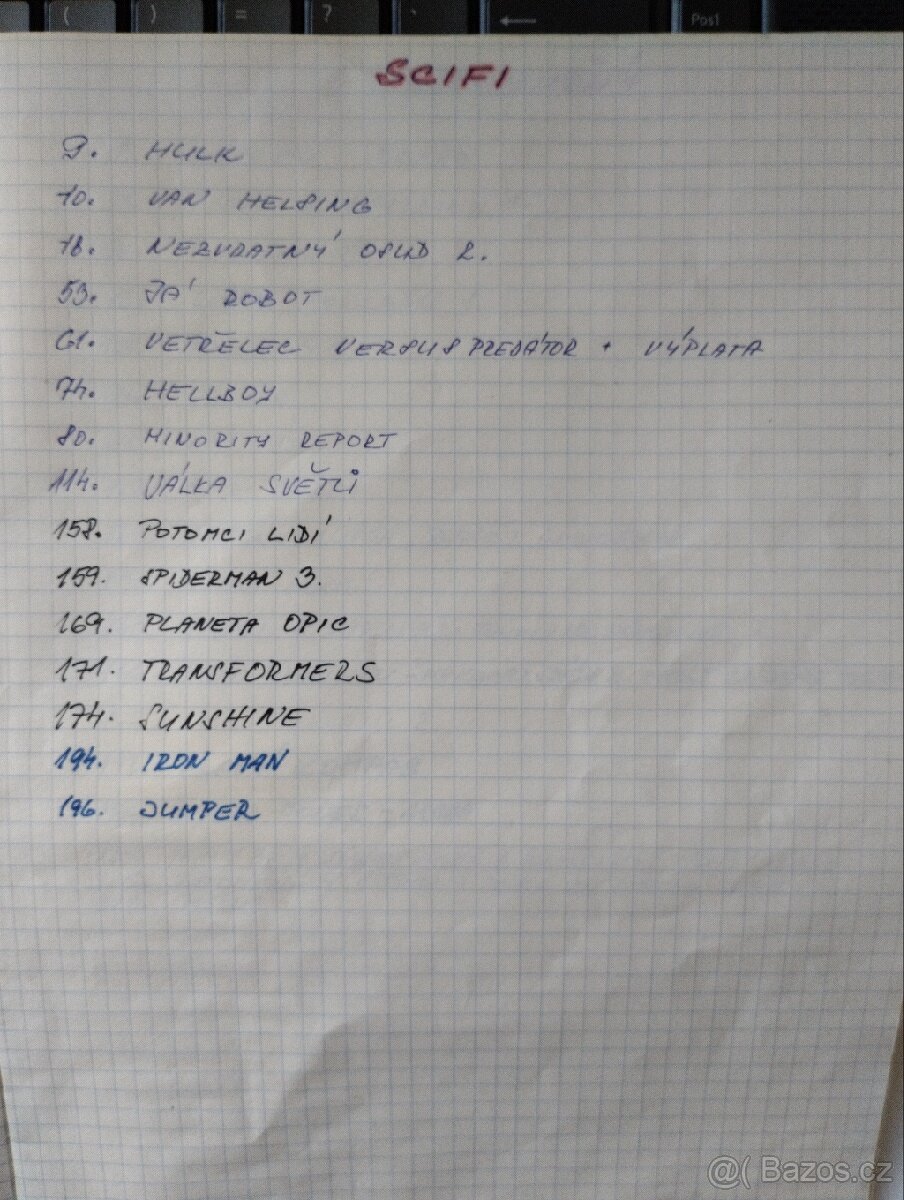 ( ) = ? ` Posl
SCIFI
9. HULK
10. VAN HELSING
18. NEZVRATNÝ OSUD 2.
53. JÁ ROBOT
61. VETŘELEC VERSUS PREDÁTOR + VÝPLATA
74. HELLBOY
80. MINORITY REPORT
114. VÁLKA SVĚTŮ
158. POTOMCI LIDÍ
159. SPIDERMAN 3.
169. PLANETA OPIC
171. TRANSFORMERS
174. SUNSHINE
194. IRON MAN
196. JUMPER
@( Bazos.cz